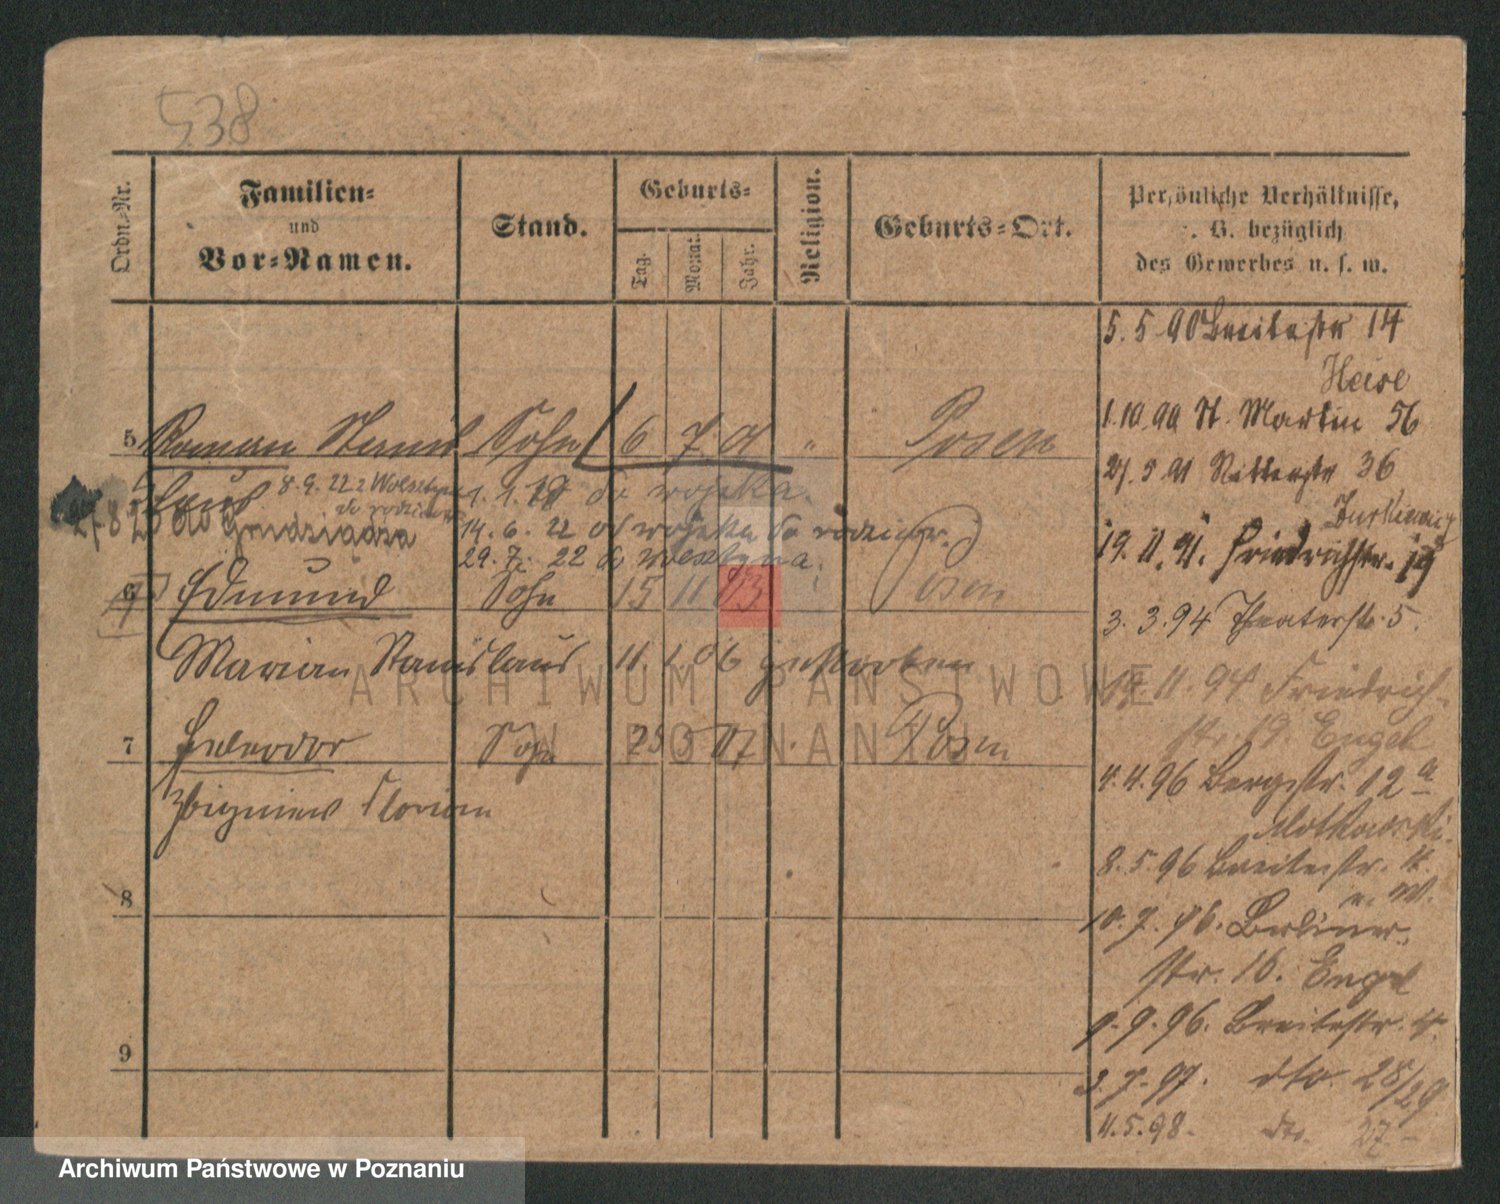 538
Ordn.-Nr.
Familien-
und
Vor-Namen.
Stand.
Geburts-
Tag.
Monat.
Jahr.
Religion.
Geburts-Ort.
Persönliche Verhältnisse,
z. B. bezüglich
des Gewerbes u. s. w.
5. 5. 90 Breitestr 14
Heise
1.10.90 St. Martin 56
5 Roman Stanis Sohn 6 7. 01 " Posen
5. 91 Ritterstr 36
laus 8.9.22 z Wolsztyna 1.1.19 do wojska.
do Grudziądza 14. 6. 22 od wojska do rodziców.
29. 7. 22 do Wolsztyna.
19. 11. 91. Friedrichstr. 19
6 Edmund Sohn 15 11 03 Posen
3. 3. 94 Theaterstr. 5.
Marian Stanislaus 11 06 gestorben
11. 94 Friedrich-
str. 19. Engel
7 Heleodor Sohn 25 3 07 Posen
4. 4. 96 Bergstr. 12 a
Zbigniew Florian
8. 5. 96 Breitestr.
8
10. 7. 96. Berliner-
str. 16. Engel
9. 96. Breitestr.
9
3. 7. 97. dto. 28/29
4. 5. 98. dto. 27.
ARCHIWUM PAŃSTWOWE
W POZNANIU
Archiwum Państwowe w Poznaniu